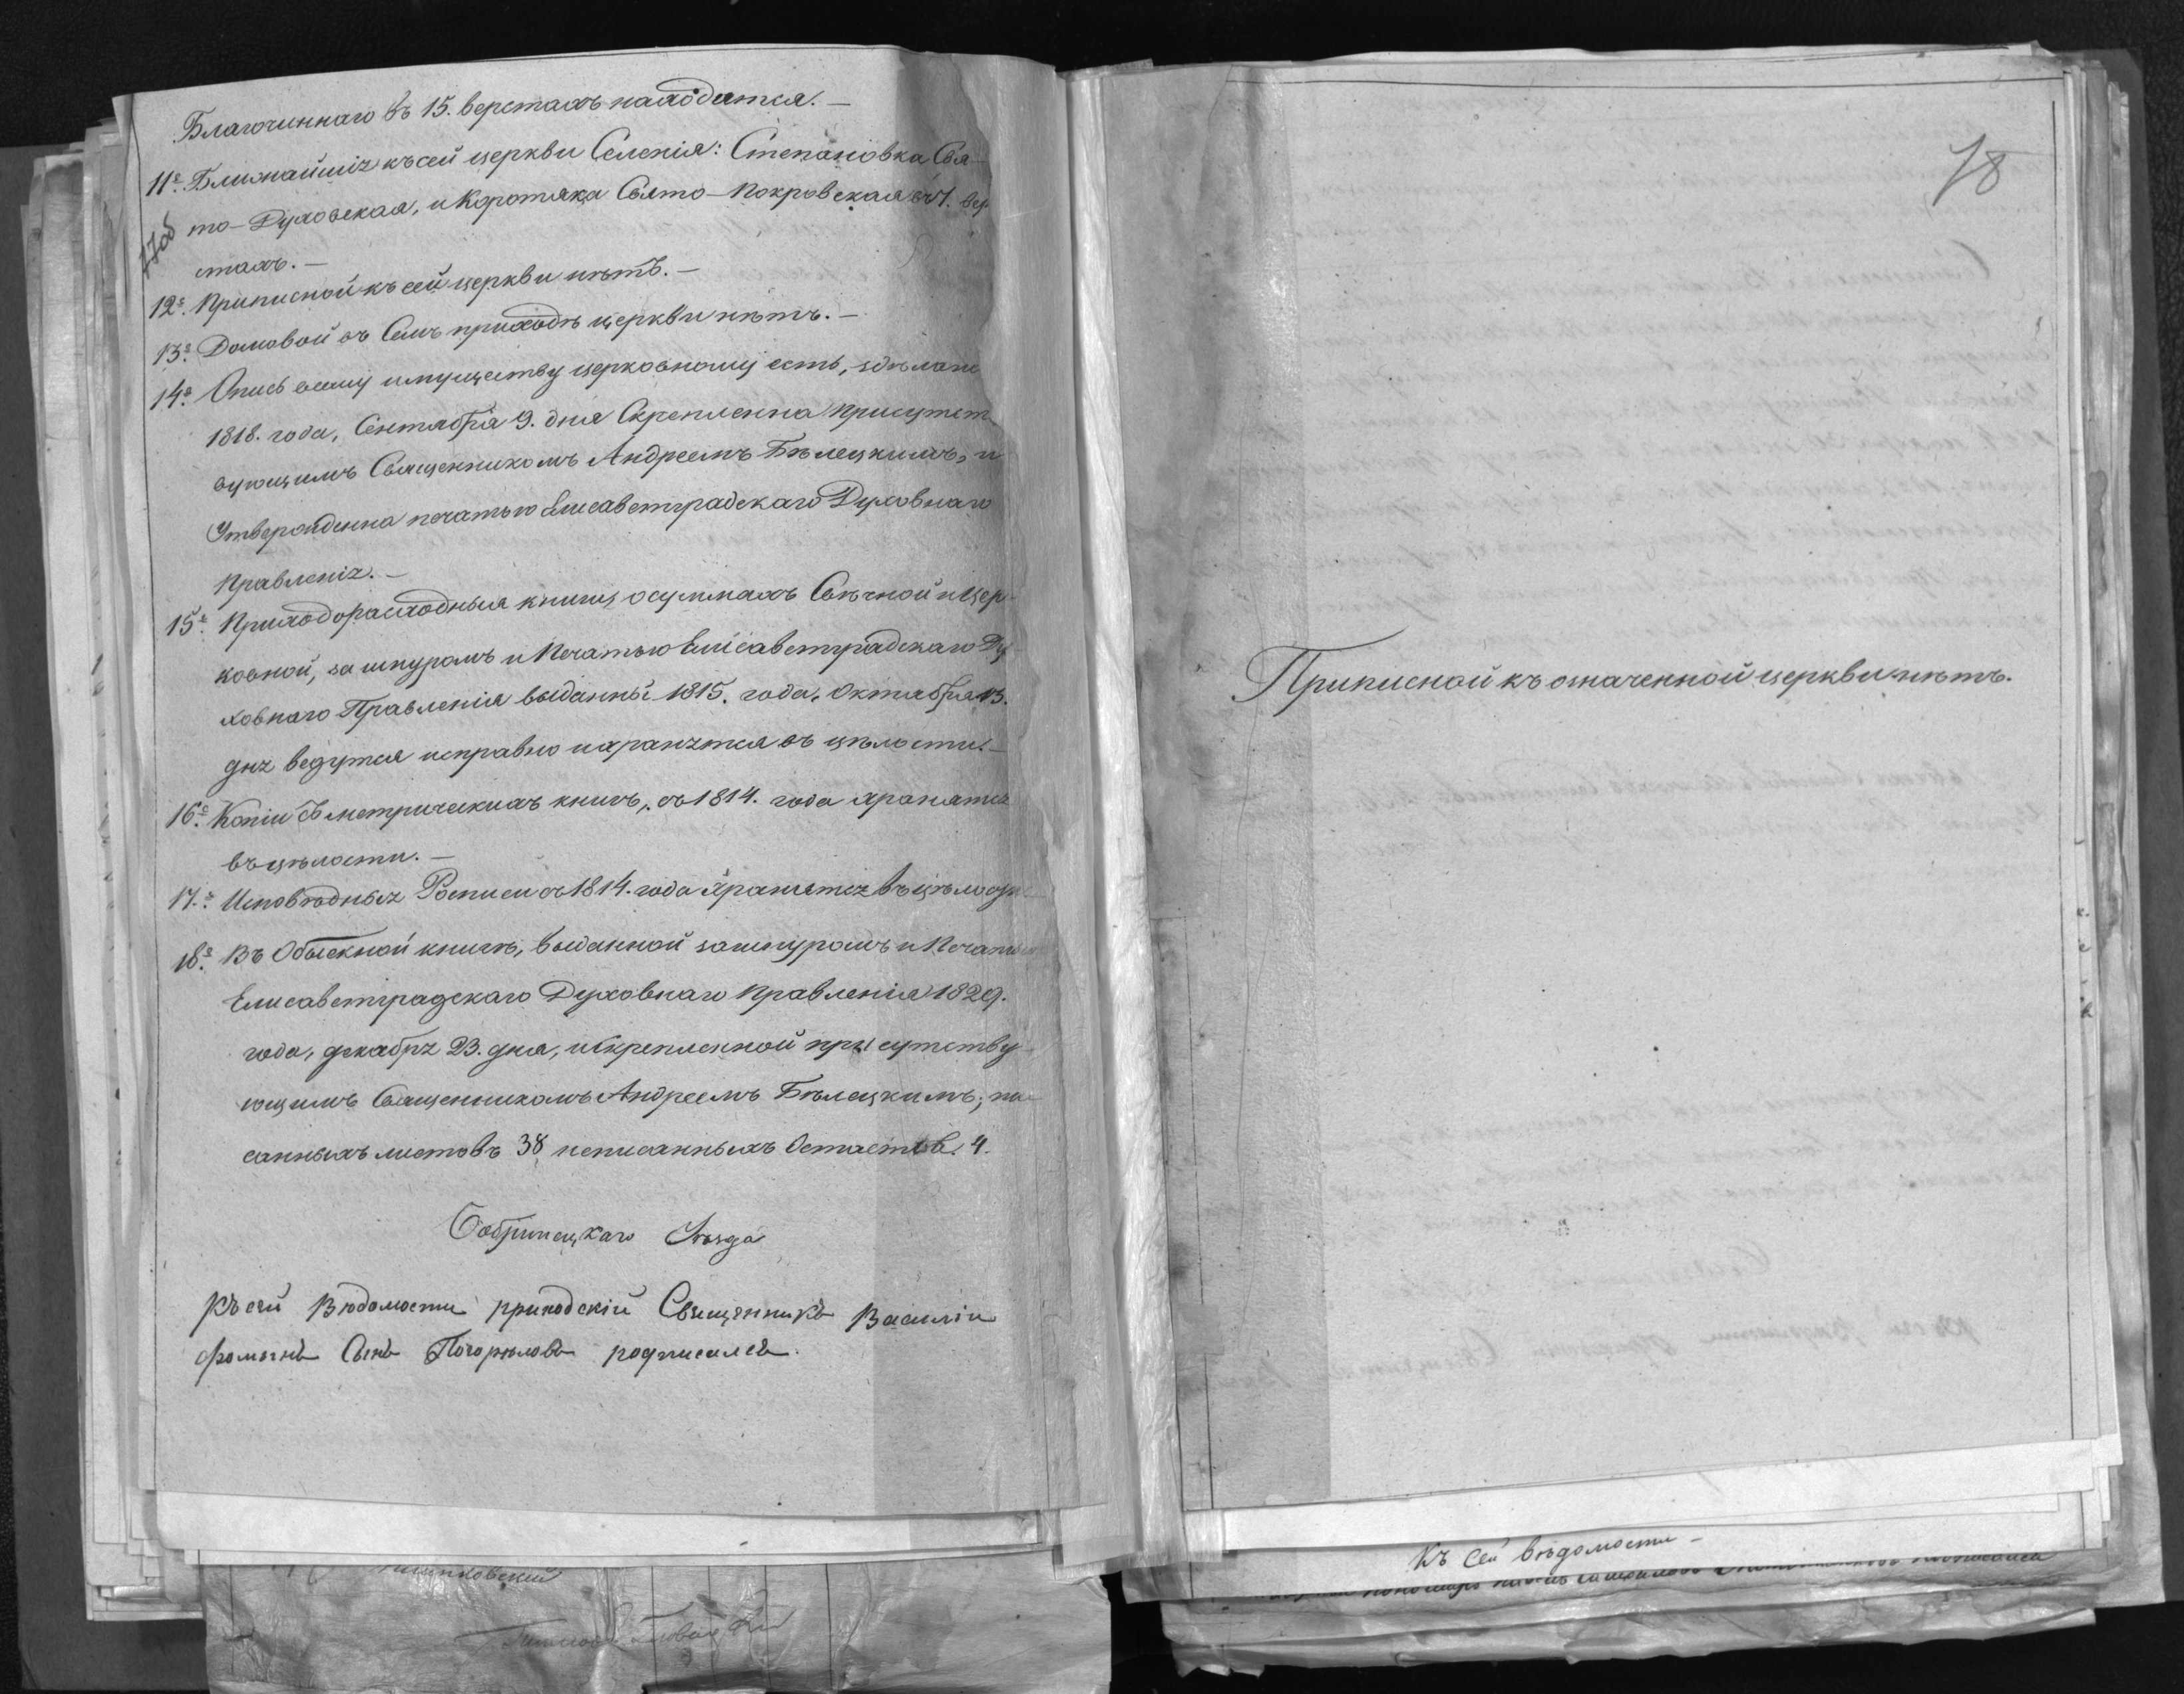 Благочиннаго въ 15. верстахъ находятся. —
11е. Ближайшіе къ сей церкви Селенія: Степановка Свя-
77об то-Духовская, и Коротяка Свято-Покровская въ 7. вер
стахъ. —
12е. Приписной къ сей церкви нѣтъ. —
13е. Домовой въ Семъ приходѣ церкви нѣтъ. —
14е. Опись всему имуществу церковному есть, здѣлана
1818. года, Сентября 9. дня Скрепленна присутст
вующимъ Священникомъ Андреемъ Бѣлецкимъ, и
Утвержденна печатью Елисаветградскаго Духовнаго
Правленія. —
15е. Приходорасходныя книги, о суммахъ Свѣчной и Цер-
ковной, за шнуромъ и Печатью Елисаветградскаго Ду
ховнаго Правленія выданны 1815. года, Октября 13.
дня ведутся исправно и хранятся въ цѣлости. —
16е. Копіи съ метрическихъ книгъ, съ 1814. года хранятся
въ цѣлости. —
17.е Исповѣдныя Росписи съ 1814. года хранятся въ цѣлости
18е. Въ Обыскной книгѣ, выданной за шнуромъ и Печатью
Елисаветградскаго Духовнаго Правленія 1829.
года, декабря 23. дня, и скрепленной присутству-
ющимъ Священникомъ Андреемъ Бѣлецкимъ, пи-
санныхъ листовъ 38 неписанныхъ Остаетсѣ 4.
Бобринецкаго Уѣзда
Къ сей Вѣдомости приходскій Священникъ Василій
Фоминъ Сынъ Погорѣловъ подписался.
78
Приписной къ означенной церкви нѣтъ.
Къ Сей вѣдомости —